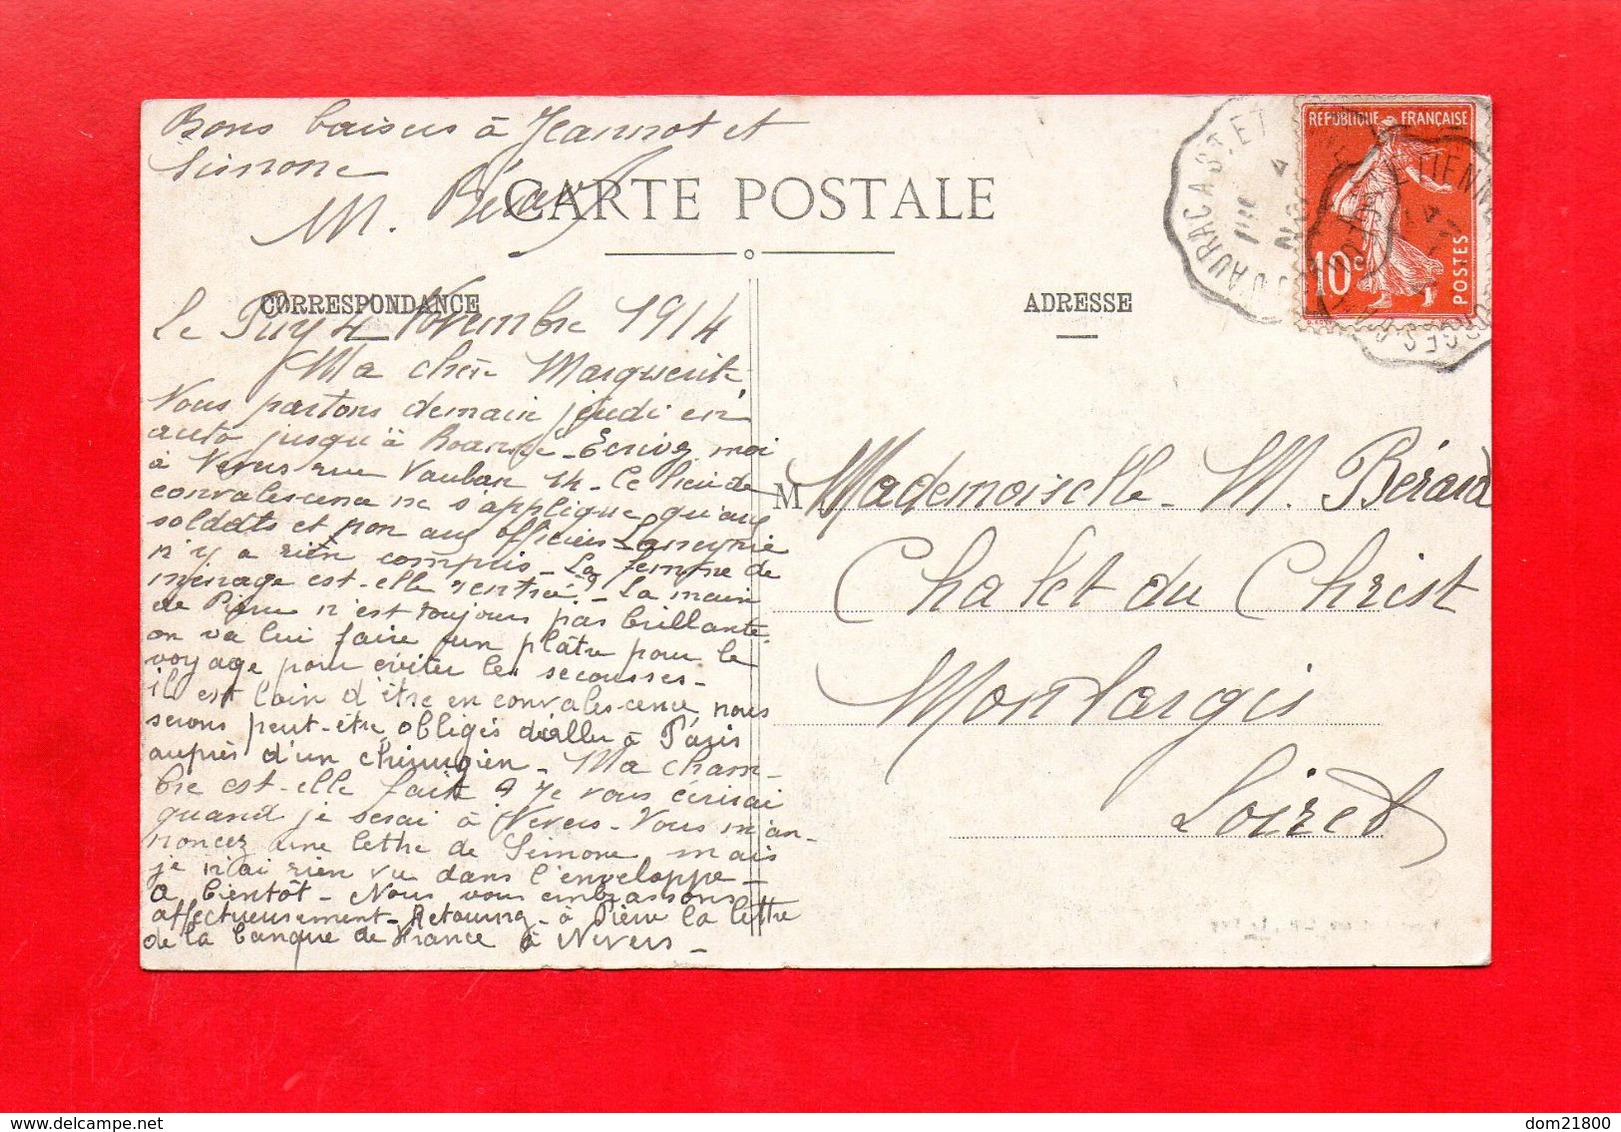 Bons baisers à Jeannot et
Simone
M. Bérard
CARTE POSTALE
CORRESPONDANCE
ADRESSE
RÉPUBLIQUE FRANÇAISE
10c
POSTES
Le Puy 4 Novembre 1914
Ma chère Marguerite,
Nous partons demain jeudi en
auto jusqu'à Roanne - Ecrivez moi
à Nevers rue Vauban 14 - Ce lieu de
convalescence ne s'applique qu'aux
soldats et non aux officiers
n'y a rien compris - La femme de
ménage est-elle rentrée ? - La main
de Pierre n'est toujours pas brillante
on va lui faire un plâtre pour le
voyage pour éviter les secousses -
il est loin d'être en convalescence, nous
serons peut-être obligés d'aller à Paris
auprès d'un chirurgien - Ma cham-
bre est-elle faite ? Je vous écrirai
quand je serai à Nevers - Vous m'an-
noncez une lettre de Simone mais
je n'ai rien vu dans l'enveloppe -
A bientôt - Nous vous embrassons
affectueusement - Retournez à Pierre la lettre
de la banque de France à Nevers -
M Mademoiselle M. Bérard
Chalet du Christ
Montargis
Loiret
dom21800